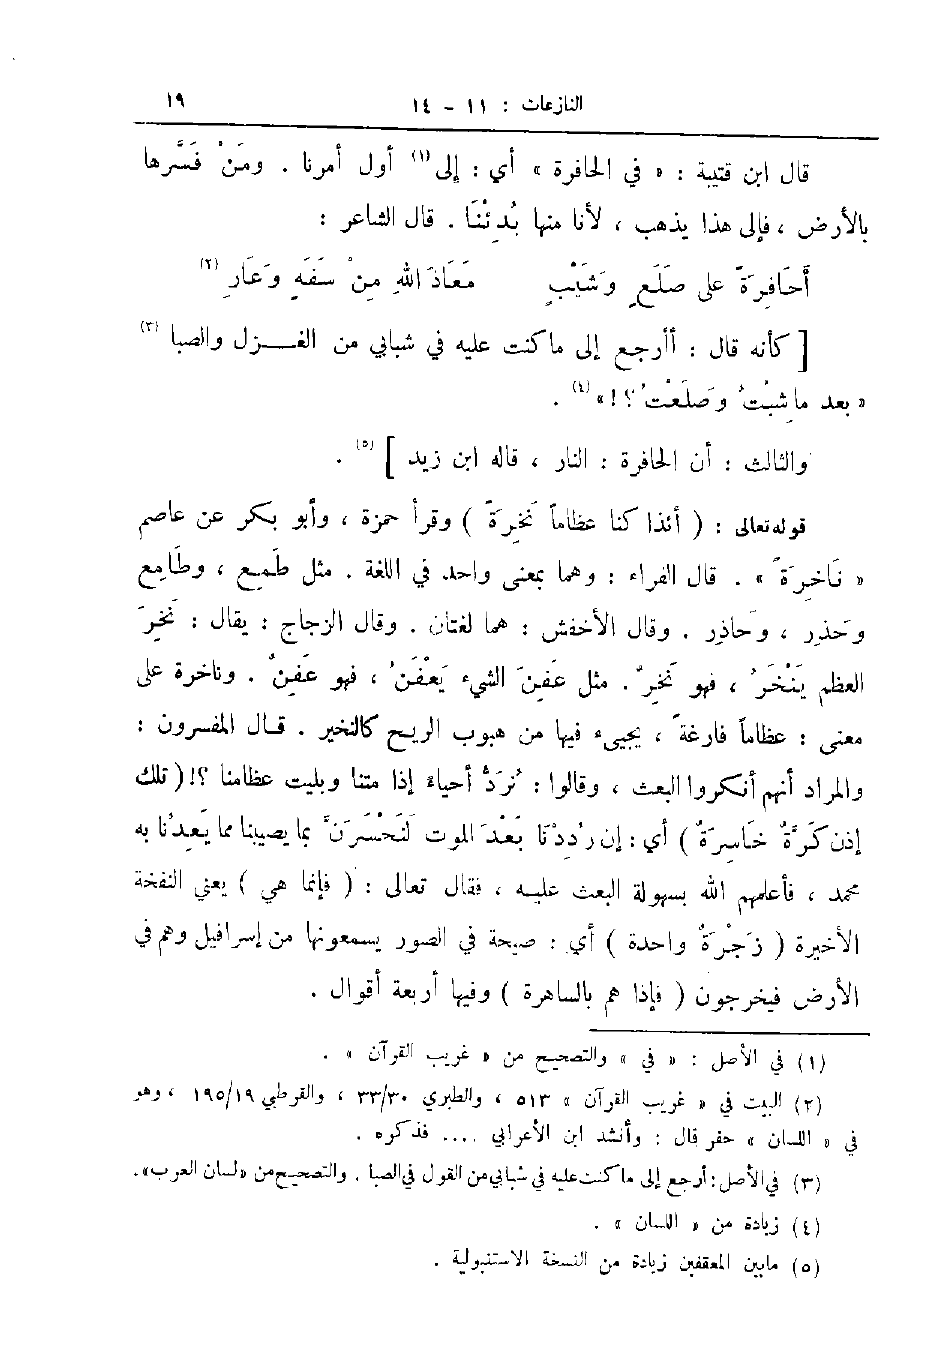 النازعات : ١١ - ١٤ ١٩
قال ابن قتيبة : « في الحافرة » أي : إلى(١) أول أمرنا . ومَنْ فَسَّرها
بالأرض ، فإلى هذا يذهب ، لأنا منها بُدِئْنَا . قال الشاعر :
أَحَافِرَةً على صَلَعٍ وَشَيْبٍ مَعَاذَ اللهِ مِنْ سَفَهٍ وَعَارِ (٢)
[ كأنه قال : أأرجع إلى ما كنت عليه في شبابي من الغزل والصبا (٣)
« بعد ما شِبْتُ وَصَلَعْتُ؟! »(٤) .
والثالث : أن الحافرة : النار ، قاله ابن زيد ](٥) .
قوله تعالى : ( أئذا كنا عظاماً نَخِرَةً ) وقرأ حمزة ، وأبو بكر عن عاصم
« نَاخِرَةً » . قال الفراء : وهما بمعنى واحد في اللغة . مثل طَمِع ، وطَامِع
وحَذِر ، وحَاذِر . وقال الأخفش : هما لغتان . وقال الزجاج : يقال : نَخِرَ
العظم يَنْخَرُ ، فهو نَخِرٌ . مثل عَفِنَ الشيء يَعْفَنُ ، فهو عَفِنٌ . وناخرة على
معنى : عظاماً فارغةً ، يجيىء فيها من هبوب الريح كالنخير . قال المفسرون :
والمراد أنهم أنكروا البعث ، وقالوا : نُرَدُّ أحياءً إذا متنا وبليت عظامنا ؟! ( تلك
إذن كَرَّةٌ خَاسِرَةٌ ) أي : إن رُدِدْنَا بَعْدَ الموت لَنَخْسَرَنَّ بما يصيبنا مما يَعِدُنا به
محمد ، فأعلمهم الله بسهولة البعث عليه ، فقال تعالى : ( فإنما هي ) يعني النفخة
الأخيرة ( زَجْرَةٌ واحدة ) أي : صيحة في الصور يسمعونها من إسرافيل وهم في
الأرض فيخرجون ( فإذا هم بالساهرة ) وفيها أربعة أقوال .
(١) في الأصل : « في » والتصحيح من « غريب القرآن » .
(٢) البيت في « غريب القرآن » ٥١٣ ، والطبري ٣٣/٣٠ ، والقرطبي ١٩٥/١٩ ، وهو
في « اللسان » حفر قال : وأنشد ابن الأعرابي .... فذكره .
(٣) في الأصل : أرجع إلى ما كنت عليه في شبابي من القول في الصبا . والتصحيح من « لسان العرب» .
(٤) زيادة من « اللسان » .
(٥) مابين المعقفين زيادة من النسخة الاستنبولية .